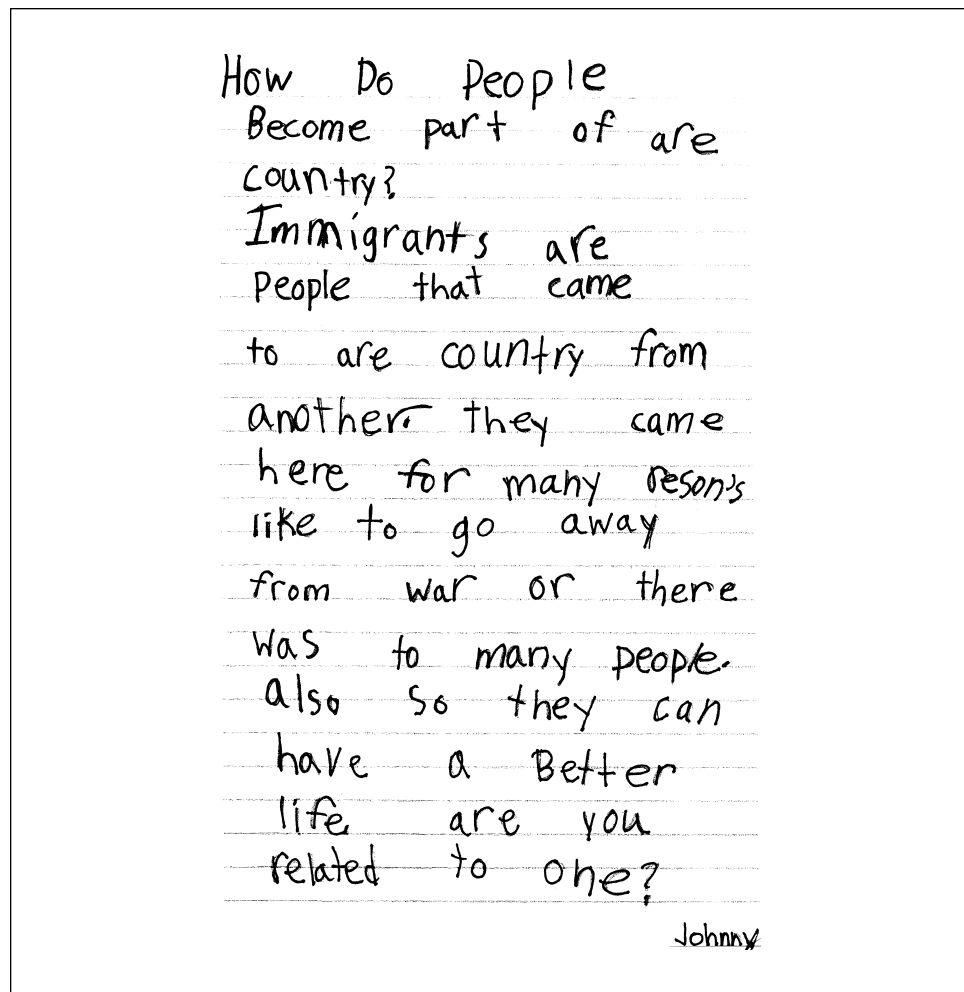 How Do People
Become part of are
country?
Immigrants are
People that came
to are country from
another. they came
here for many reson's
like to go away
from war or there
was to many people.
also so they can
have a Better
life are you
related to one?
Johnny